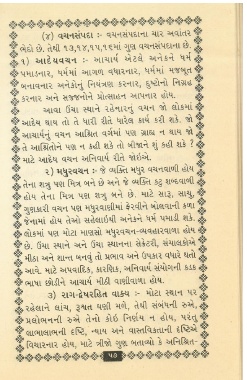 (૪) વચનસંપદા :- વચનસંપદાના ચાર અવાંતર
ભેદો છે. તેથી ૧૩,૧૪,૧૫,૧૬માં ગુણ વચનસંપદાના છે.
૧) આદેયવચન :- આચાર્ય એટલે અનેકને ધર્મ
પમાડનાર, ધર્મમાં આગળ વધારનાર, ધર્મમાં મજબૂત
બનાવનાર અનેકોનું નિયંત્રણ કરનાર, દુષ્ટોનો નિગ્રહ
કરનાર અને સજ્જનોને પ્રોત્સાહન આપનાર હોય.
આવા ઉંચા સ્થાને રહેનારાનું વચન જો લોકમાં
આદેય થાય તો તે પારી રીતે પાલેલ કાર્ય કરી શકે. જો
આચાર્યનું વચન આશ્રિત વર્ગમાં પણ ગ્રાહ્ય ન થાય જો
તે આશ્રિતોને પણ ન કહી શકે તો બીજાને શું કહી શકે ?
માટે આદેય વચન અનિવાર્ય રીતે જોઈએ.
૨) મધુરવચન :- જે વ્યક્તિ મધુર વચનવાળી હોય
તેના શત્રુ પણ મિત્ર બને છે અને જે વ્યક્તિ કટુ શબ્દવાળી
હોય તેના મિત્ર પણ શત્રુ બને છે. માટે સારૂ, સાચુ,
ગુણકારી વચન પણ મધુરવાણીમાં ફેરવીને બોલવાની કળા
જેનામાં હોય તેઓ સહેલાઈથી અનેકને ધર્મ પમાડી શકે.
લોકમાં પણ મોટા માણસો મધુરવચન-વ્યવહારવાળા હોય
છે. ઉંચા સ્થાને અને ઉંચા સ્થાનના સેક્રેટરી, સંચાલકોએ
મીઠા અને શાન્ત બનવું તો પ્રભાવ અને ઉપકાર વધારે થતો
આવે. માટે અપવાદિક, કારણિક, અનિવાર્ય સંયોગની કડક
ભાષા છોડીને આચાર્ય મીઠી વાણીવાળા હોય.
૩) રાગ-દ્વેષરહિત વાક્ય :- મોટા સ્થાન પર
રહેલાને લાંચ, રૂશ્વત ઘણી મળે, તેથી સંબંધની રુએ,
પ્રલોભનની રુએ તેનો કોઈ નિર્ણય ન હોય, પરંતુ
લાભાલાભની દષ્ટિ, ન્યાય અને વાસ્તવિકતાની દષ્ટિએ
વિચારનાર હોય, માટે ત્રીજો ગુણ બતાવ્યો કે અનિશ્રિત-
૫૭